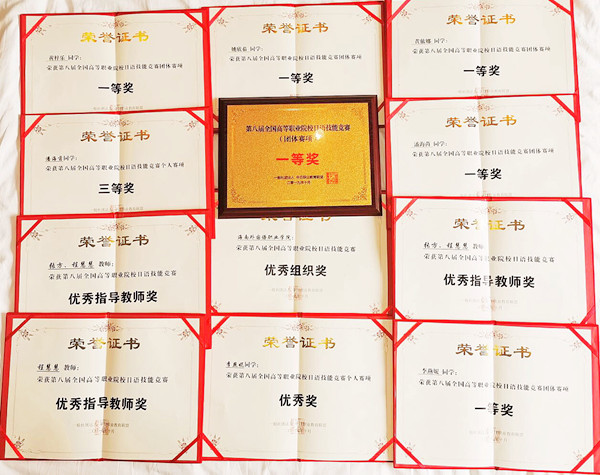 荣誉证书
同学:
荣获第八届全国高等职业院校日语技能竞赛团体赛项
一等奖
荣誉证书
同学:
荣获第八届全国高等职业院校日语技能竞赛团体赛项
一等奖
荣誉证书
同学:
荣获第八届全国高等职业院校日语技能竞赛团体赛项
一等奖
荣誉证书
潘海茵同学:
荣获第八届全国高等职业院校日语技能竞赛个人赛项
三等奖
第八届全国高等职业院校日语技能竞赛
(团体赛项
一等奖
二〇一九年十月
荣誉证书
潘海茵同学:
荣获第八届全国高等职业院校日语技能竞赛团体赛项
一等奖
荣誉证书
张方、程慧慧 教师:
荣获第八届全国高等职业院校日语技能竞赛
优秀指导教师奖
海南外国语职业学院:
荣获第八届全国高等职业院校日语技能竞赛
优秀组织奖
荣誉证书
张方、程慧慧 教师:
荣获第八届全国高等职业院校日语技能竞赛
优秀指导教师奖
荣誉证书
程慧慧 教师:
荣获第八届全国高等职业院校日语技能竞赛
优秀指导教师奖
荣誉证书
李燕妮同学:
荣获第八届全国高等职业院校日语技能竞赛个人赛项
优秀奖
荣誉证书
李燕妮 同学:
荣获第八届全国高等职业院校日语技能竞赛团体赛项
一等奖